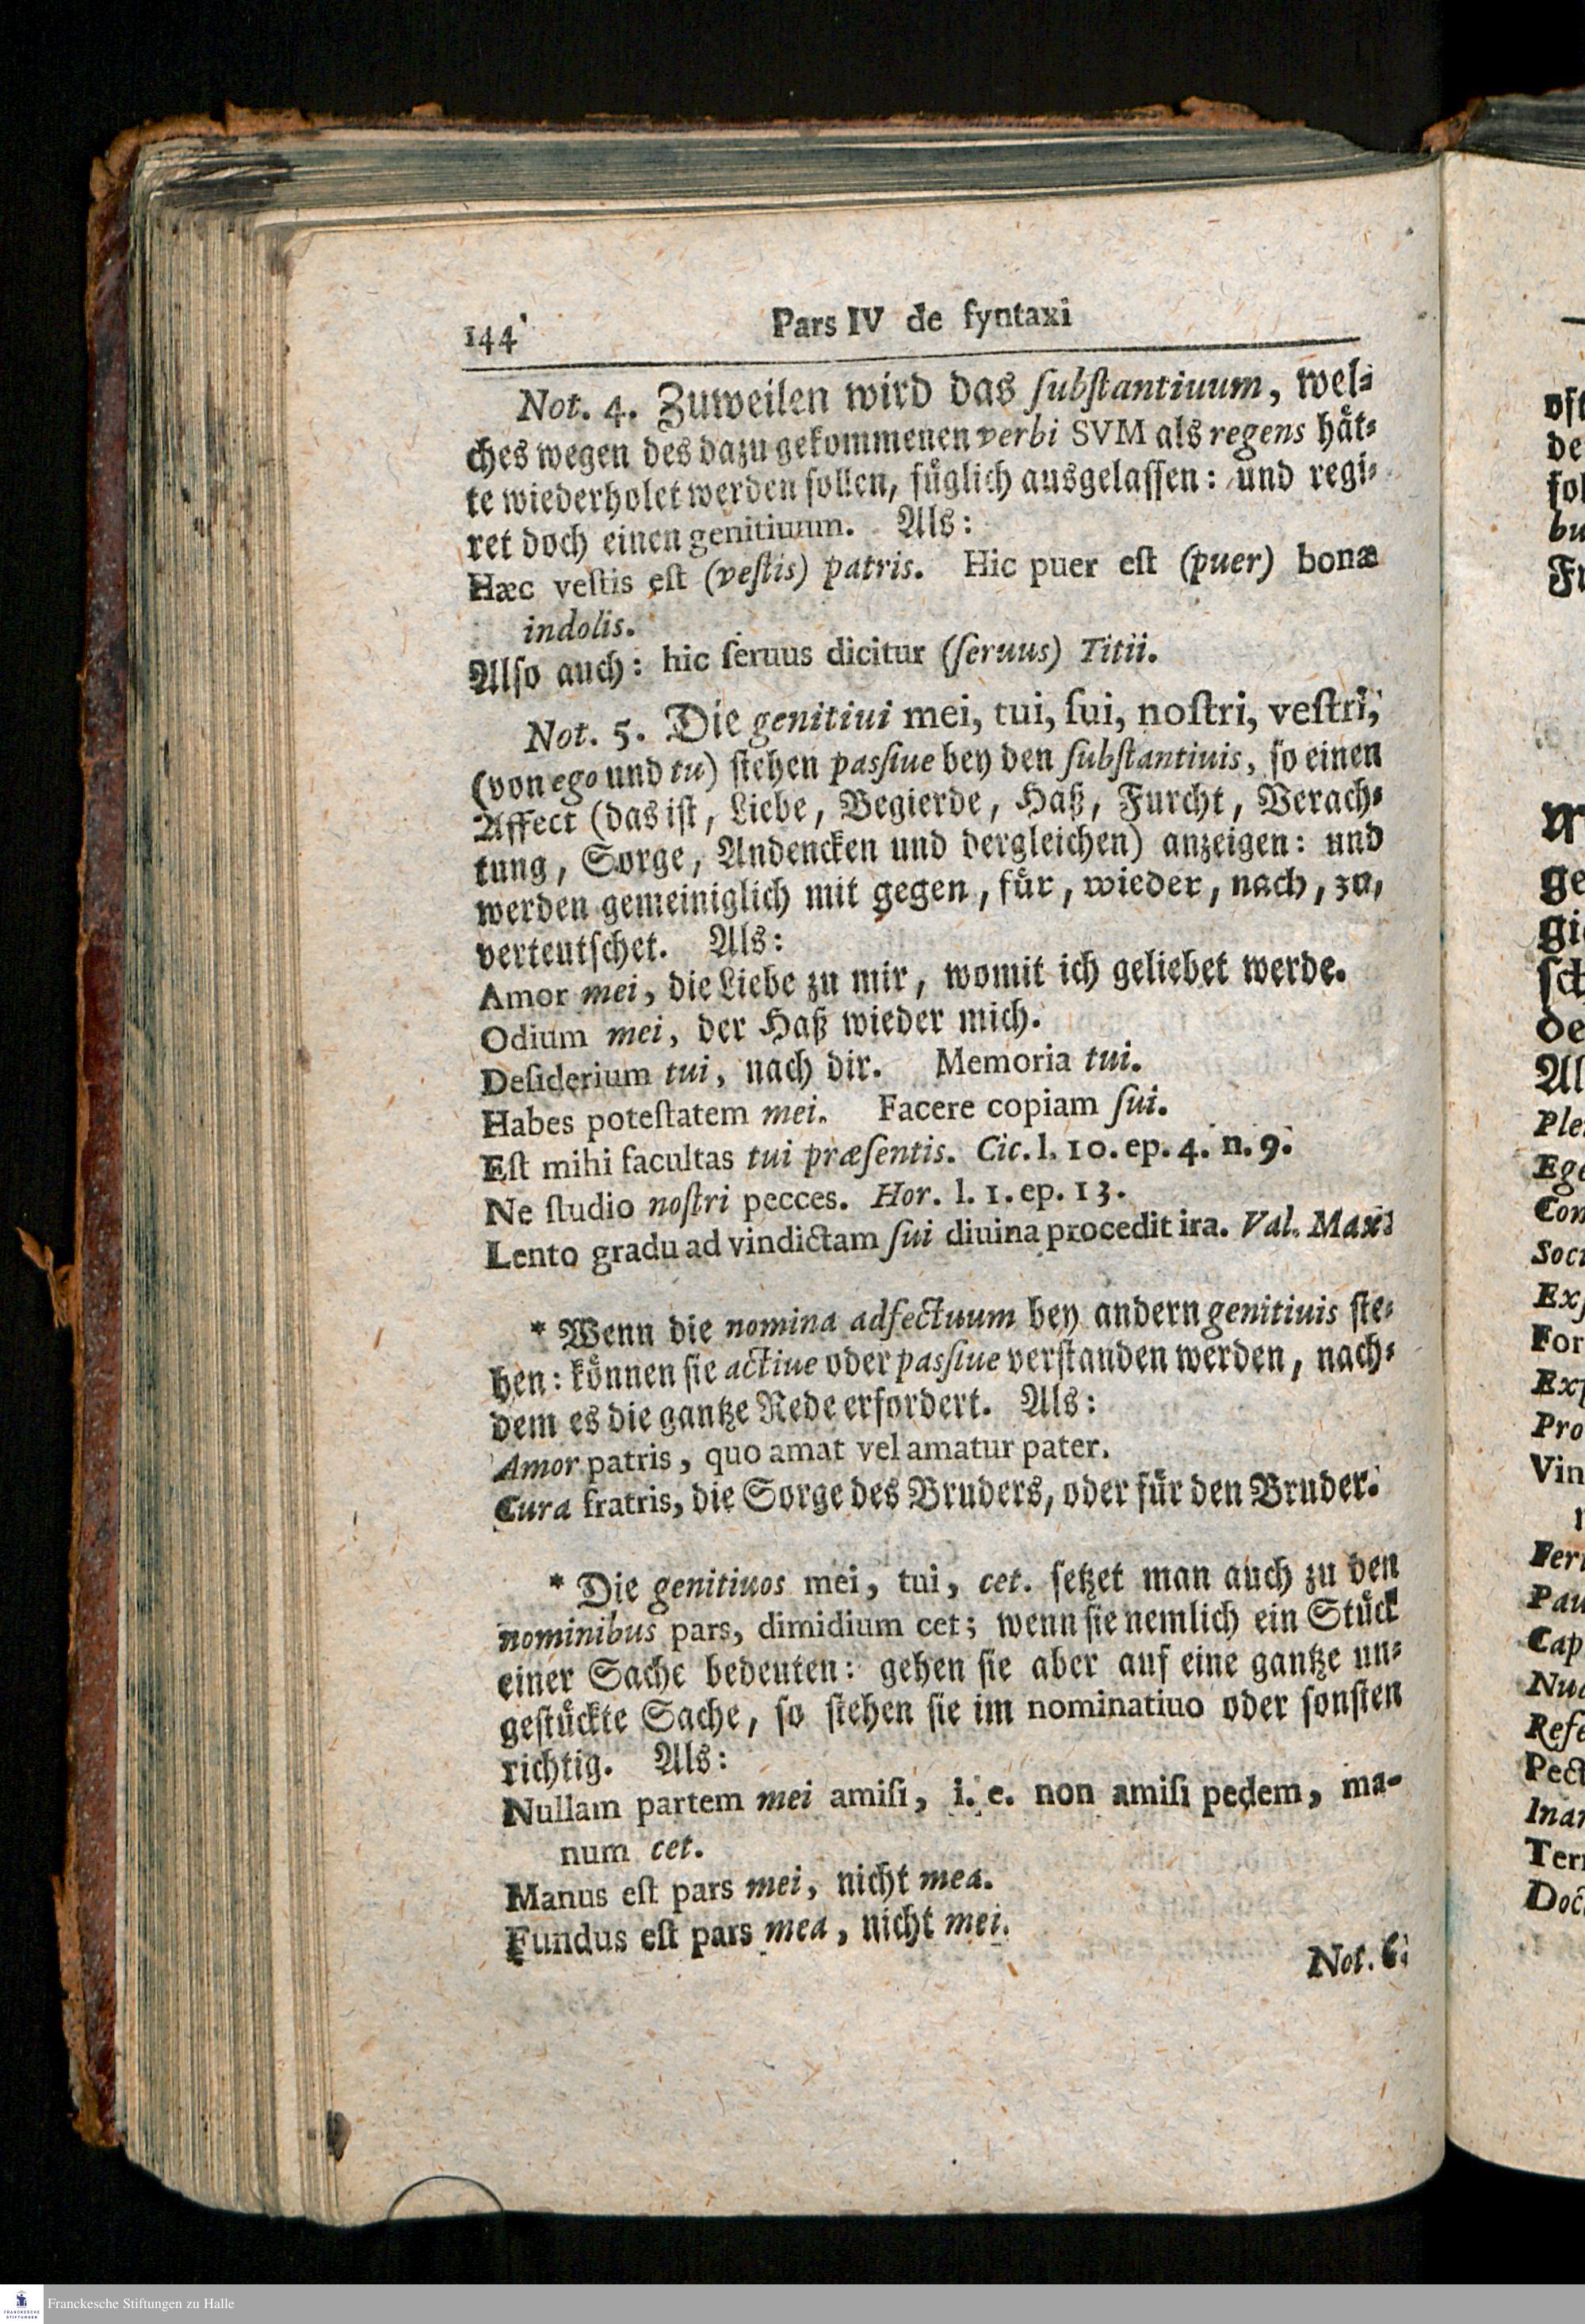 144
Pars IV de ſyntaxi
Not. 4. Zuweilen wird das ſubſtantiuum, wel⸗
ches wegen des dazu gekommenen verbi SVM als regens håt⸗
te wiederholet werden ſollen, fůglich ausgelaſſen: und regi⸗
ret doch einen genitiuum. Als:
Hæc veſtis eſt (veſtis) patris. Hic puer eſt (puer) bonæ
indolis.
Alſo auch: hic ſeruus dicitur (ſeruus) Titii.
Not. 5. Die genitiui mei, tui, ſui, noſtri, veſtri,
(von ego und tu) ſtehen paſſiue bey den ſubſtantiuis, ſo einen
Affect (das iſt, Liebe, Begierde, Haß, Furcht, Verach⸗
tung, Sorge, Andencken und dergleichen) anzeigen: und
werden gemeiniglich mit gegen, fůr, wieder, nach, zu,
verteutſchet. Als:
Amor mei, die Liebe zu mir, womit ich geliebet werde.
Odium mei, der Haß wieder mich.
Deſiderium tui, nach dir. Memoria tui.
Habes poteſtatem mei. Facere copiam ſui.
Eſt mihi facultas tui præſentis. Cic. l. 10. ep. 4. n. 9.
Ne ſtudio noſtri pecces. Hor. l. 1. ep. 13.
Lento gradu ad vindictam ſui diuina procedit ira. Val. Max.
* Wenn die nomina adfectuum bey andern genitiuis ſte⸗
hen: kőnnen ſie actiue oder paſſiue verſtanden werden, nach⸗
dem es die gantze Rede erfordert. Als:
Amor patris, quo amat vel amatur pater.
Cura fratris, die Sorge des Bruders, oder fůr den Bruder.
* Die genitiuos mei, tui, cet. ſetzet man auch zu den
nominibus pars, dimidium cet; wenn ſie nemlich ein Stůck
einer Sache bedeuten: gehen ſie aber auf eine gantze un⸗
geſtůckte Sache, ſo ſtehen ſie im nominatiuo oder ſonſten
richtig. Als:
Nullam partem mei amiſi, i. e. non amiſi pedem, ma-
num cet.
Manus eſt pars mei, nicht mea.
Fundus eſt pars mea, nicht mei.
Not. 6.
Franckesche Stiftungen zu Halle